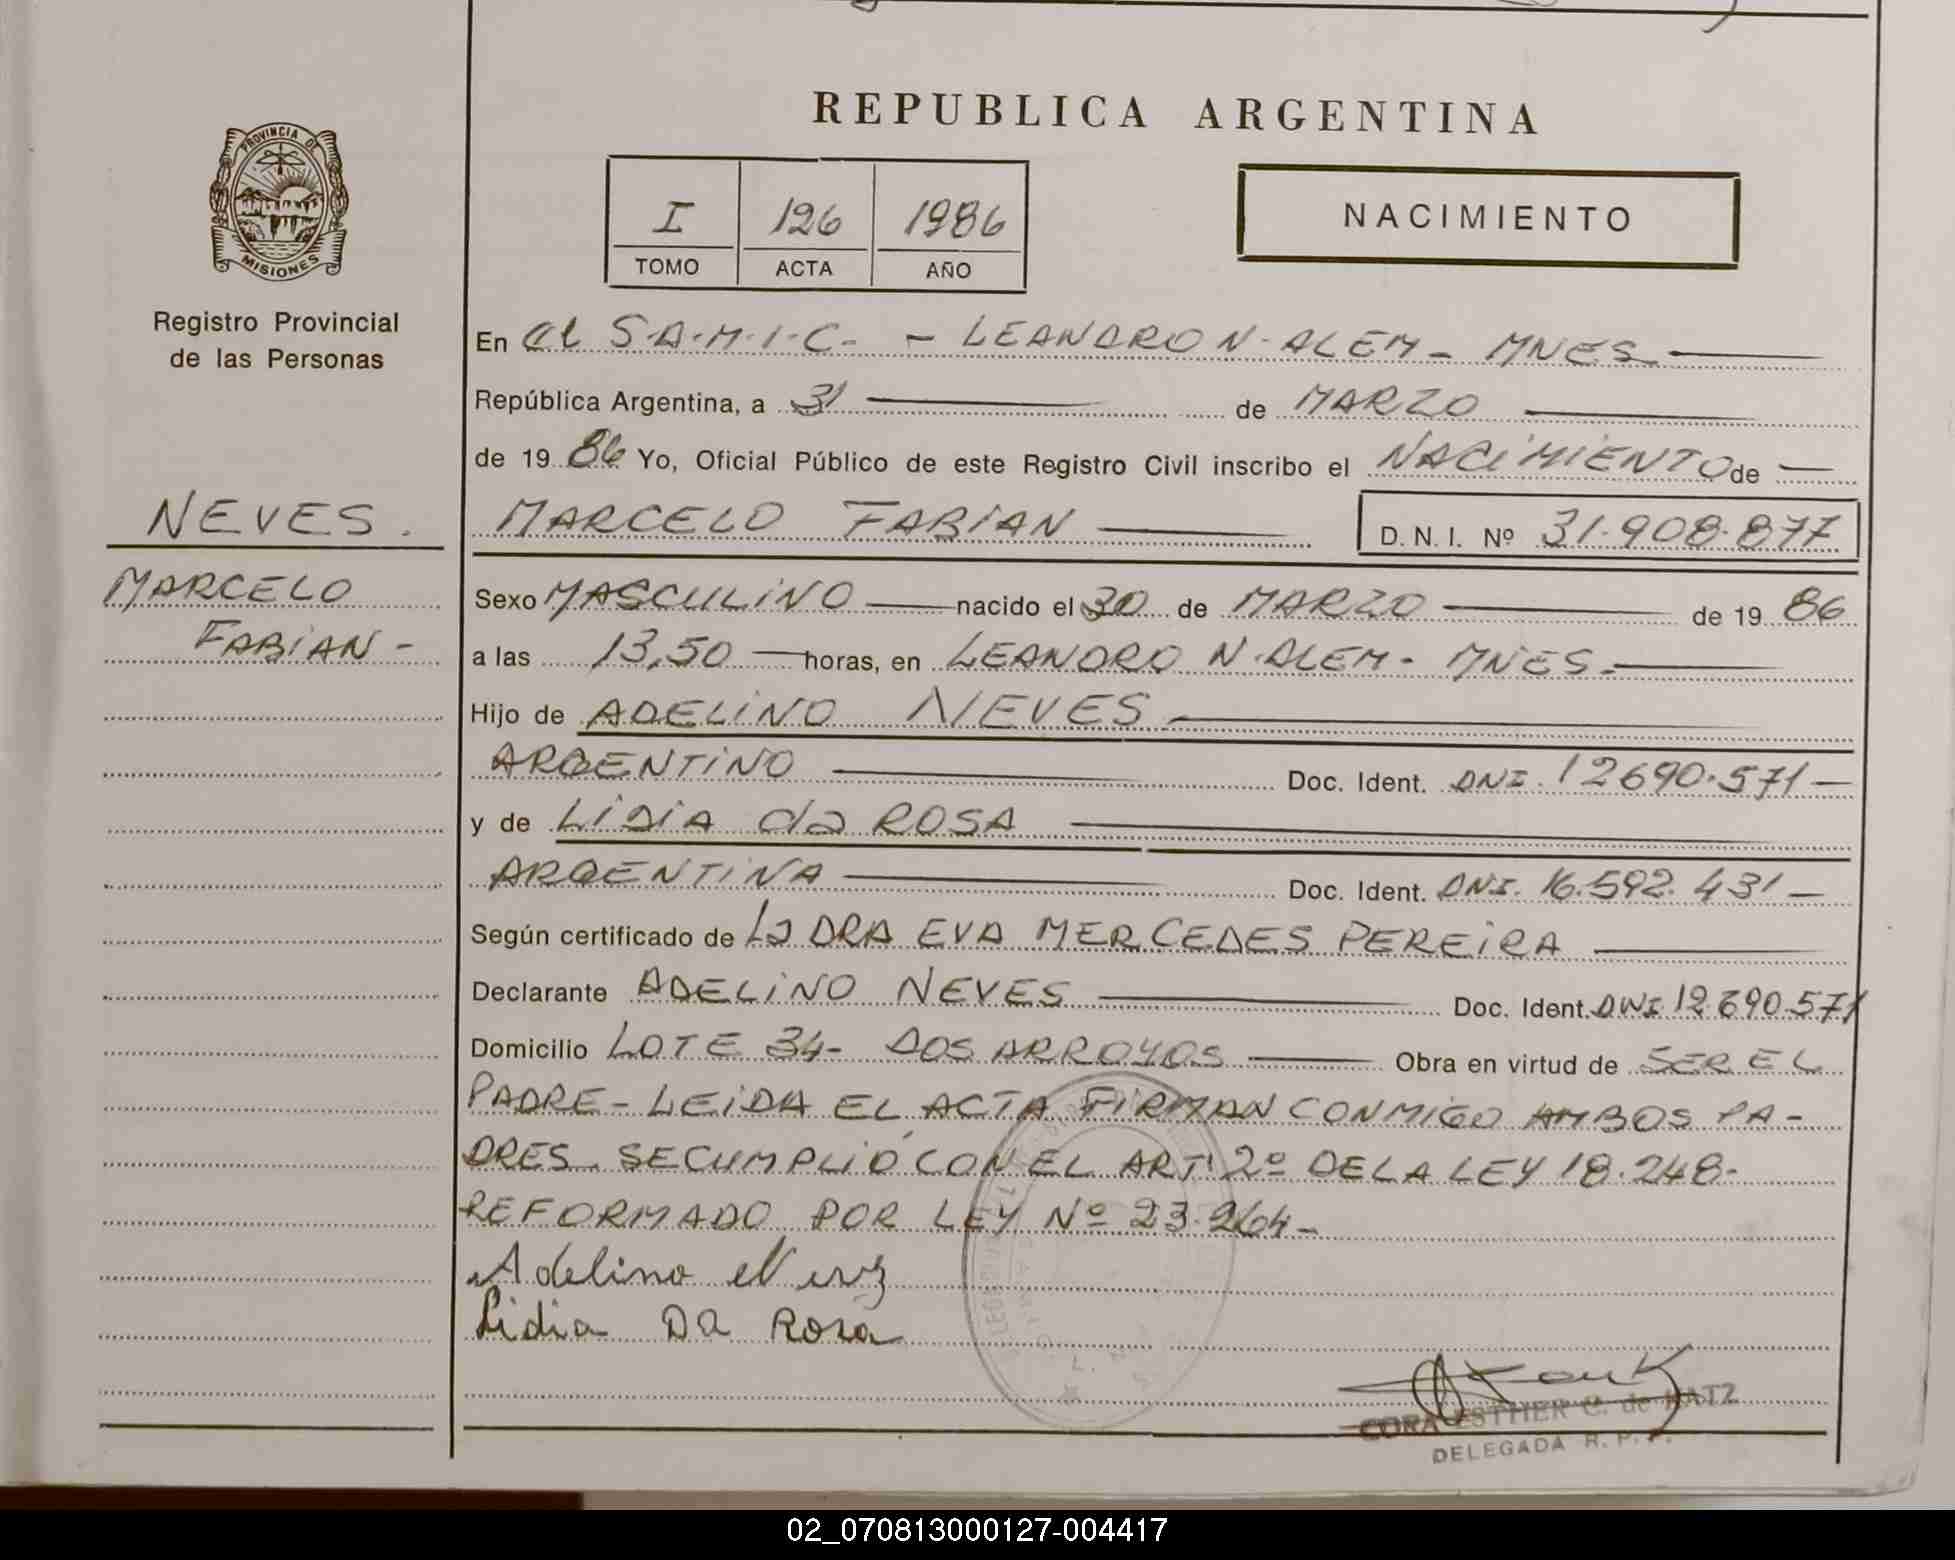 REPUBLICA ARGENTINA
PROVINCIA DE
MISIONES
Registro Provincial
de las Personas
I 126 1986
TOMO ACTA AÑO
NACIMIENTO
En el S.A.M.I.C. - LEANDRO N. ALEM - MNES.
República Argentina, a 31 de MARZO
de 19 86 Yo, Oficial Público de este Registro Civil inscribo el NACIMIENTO de
NEVES.
MARCELO FABIAN D. N. I. Nº 31.908.877
MARCELO
FABIAN -
Sexo MASCULINO nacido el 30 de MARZO de 19 86
a las 13,50 horas, en LEANDRO N. ALEM - MNES.
Hijo de ADELINO NEVES
ARGENTINO Doc. Ident. DNI. 12690.571 -
y de LIDIA da ROSA
ARGENTINA Doc. Ident. DNI. 16.592.431 -
Según certificado de La DRA EVA MERCEDES PEREIRA
Declarante ADELINO NEVES Doc. Ident. DNI 12.690.571
Domicilio LOTE 34 - DOS ARROYOS Obra en virtud de SER EL
PADRE - LEIDA EL ACTA FIRMAN CONMIGO AMBOS PA-
DRES. SE CUMPLIÓ CON EL ART. 2º DE LA LEY 18.248-
REFORMADO POR LEY Nº 23.264 -
Adelino Nevez
Lidia Da Rosa
CORA ESTHER C. de KATZ
DELEGADA R. P. P.
02_070813000127-004417